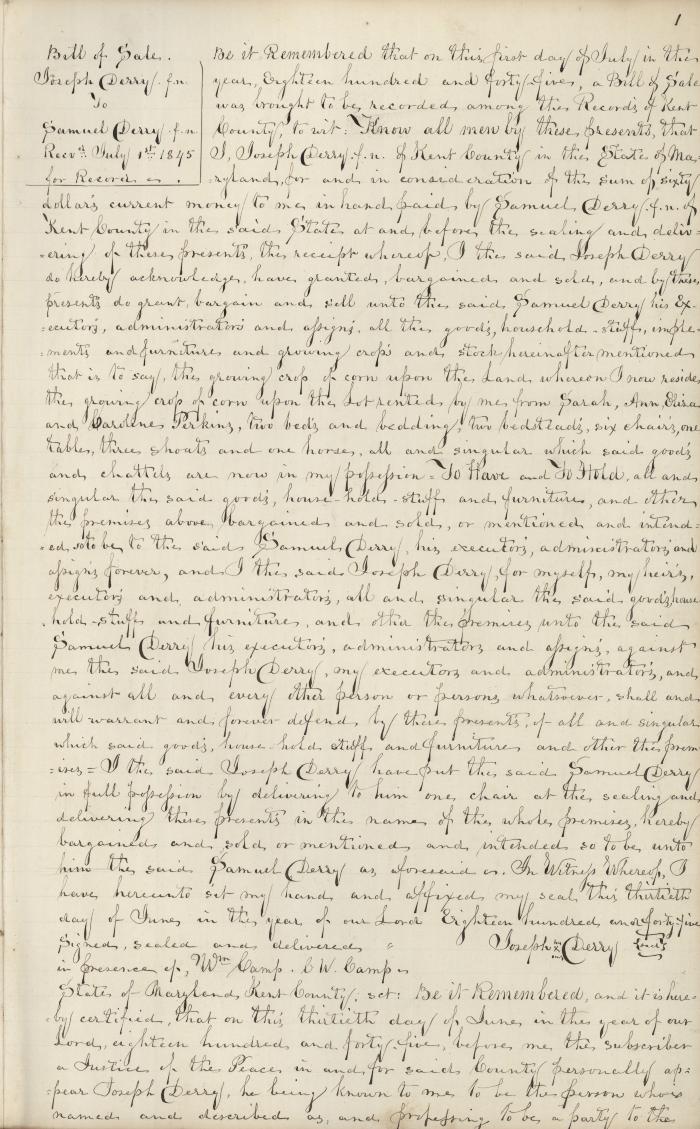 1
Bill of Sale.
Joseph Derry f.n.
To
Samuel Derry f.n.
Recd. July 1st 1845
for Record &c.
Be it Remembered that on this first day of July in the
year, Eighteen hundred and forty-five, a Bill of Sale
was brought to be recorded among the Records of Kent
County, to wit: Know all men by these presents, that
I, Joseph Derry f.n. of Kent County in the State of Ma-
-ryland, for and in consideration of the sum of sixty
dollars current money to me in hand paid by Samuel Derry f.n. of
Kent County in the said State at and before the sealing and deliv-
-ering of these presents, the receipt whereof, I the said Joseph Derry
do hereby acknowledge, have granted, bargained and sold, and by these
presents do grant, bargain and sell unto the said Samuel Derry his Ex-
-ecutors, administrators and assigns, all the goods, household-stuff, imple-
-ments and furniture and growing crops and stock hereinafter mentioned
that is to say, the growing crop of corn upon the Land whereon I now reside
the growing crop of corn upon the Lot rented by me from Sarah, Ann, Eliza
and Caroline Perkins, two beds and bedding, two bedsteads, six chairs, one
table, three shoats and one horse, all and singular which said goods
and chattels are now in my possession = To Have and To Hold, all and
singular the said goods, house-hold-stuff and furniture, and other
the premises above bargained and sold, or mentioned and intend-
-ed so to be to the said Samuel Derry, his executors, administrators and
assigns forever, and I the said Joseph Derry, for myself, my heirs,
executors and administrators, all and singular the said goods, house
hold-stuff and furniture, and other the premises unto the said
Samuel Derry his executors, administrators and assigns, against
me the said Joseph Derry, my executors and administrators, and
against all and every other person or persons whatsoever, shall and
will warrant and forever defend by these presents, of all and singular
which said goods, house hold stuff and furniture and other the prem
-ises = I the said Joseph Derry have put the said Samuel Derry
in full possession by delivering to him one chair at the sealing and
delivering these presents in the name of the whole premises, hereby
bargained and sold or mentioned and intended so to be unto
him the said Samuel Derry as aforesaid In Witness Whereof, I
have hereunto set my hand and affixed my seal this thirtieth
day of June in the year of our Lord Eighteen hundred and forty-five
Signed, sealed and delivered Joseph his x mark Derry {seal}
in presence of, Wm Camp. C W. Camp
State of Maryland, Kent County, sct: Be it Remembered, and it is here-
-by certified, that on this thirtieth day of June in the year of our
Lord, eighteen hundred and forty-five, before me the subscriber
a Justice of the Peace in and for said County personally ap-
-pear Joseph Derry, he being known to me to be the person who is
named and described as, and professing to be a party to the